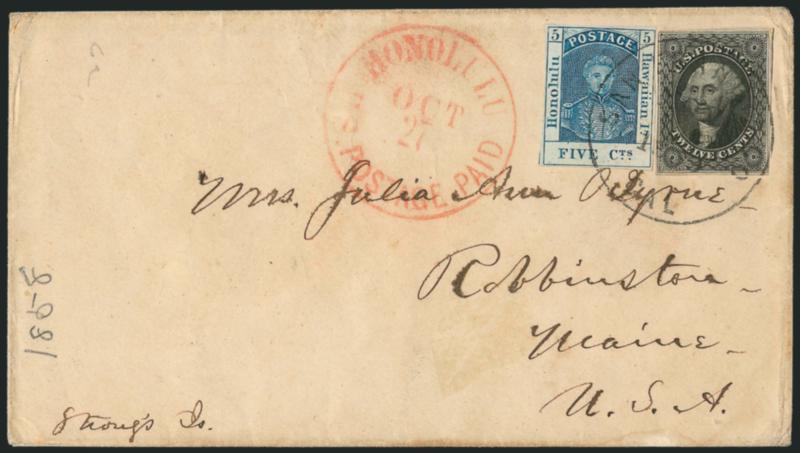 U.S. POSTAGE
TWELVE CENTS
5 POSTAGE 5
Honolulu
Hawaiian Is.
FIVE CTS
HONOLULU
OCT
POSTAGE PAID
CAL
Mrs. Julia Ann
Robbinston
Maine
U.S.A.
1858
Strong's Is.